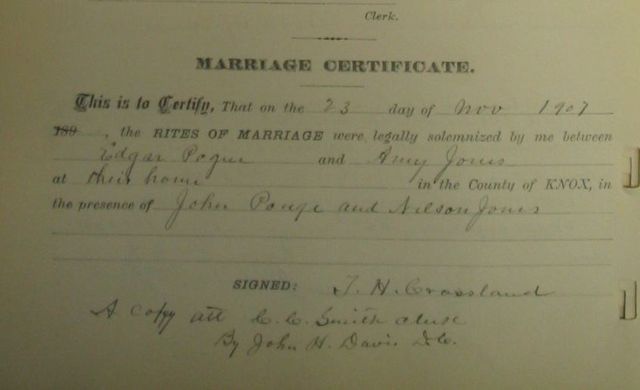 Clerk.
MARRIAGE CERTIFICATE.
This is to Certify, That on the 23 day of Nov 1907
189 , the RITES OF MARRIAGE were legally solemnized by me between
Edgar Pogue and Amy Jones
at their home in the County of KNOX, in
the presence of John Pouge and Nelson Jones
SIGNED: T. H. Crossland
A copy att C. C. Smith
By John H. Davis D.C.